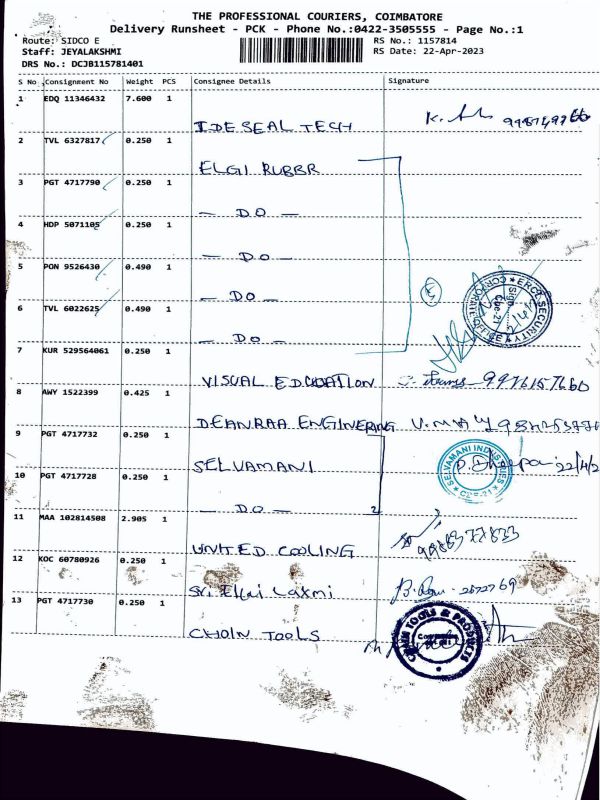 THE PROFESSIONAL COURIERS, COIMBATORE
Delivery Runsheet - PCK - Phone No.:0422-3505555 - Page No.:1
Route: SIDCO E RS No.: 1157814
Staff: JEYALAKSHMI RS Date: 22-Apr-2023
DRS No.: DCJB115781401
S No Consignment No Weight PCS Consignee Details Signature
1 EDQ 11346432 7.600 1
IDESEAL TECH
2 TVL 6327817 0.250 1
ELGI RUBBR
3 PGT 4717790 0.250 1
— D.O —
4 HDP 5071105 0.250 1
— D.O —
5 PON 9526430 0.490 1
— D.O —
6 TVL 6022625 0.490 1
— D.O —
7 KUR 529564061 0.250 1
VISUAL EDUCATION 9976157660
8 AWY 1522399 0.425 1
DEANRAA ENGINERING
9 PGT 4717732 0.250 1
SELVAMANI
10 PGT 4717728 0.250 1
— D.O — 2
SELVAMANI INDUSTRIES
CBE-21
11 MAA 102814508 2.905 1
UNITED COOLING
12 KOC 60780926 0.250 1
Sri Ellai Laxmi
13 PGT 4717730 0.250 1
CHAIN TOOLS
CHAIN TOOLS & PRODUCTS